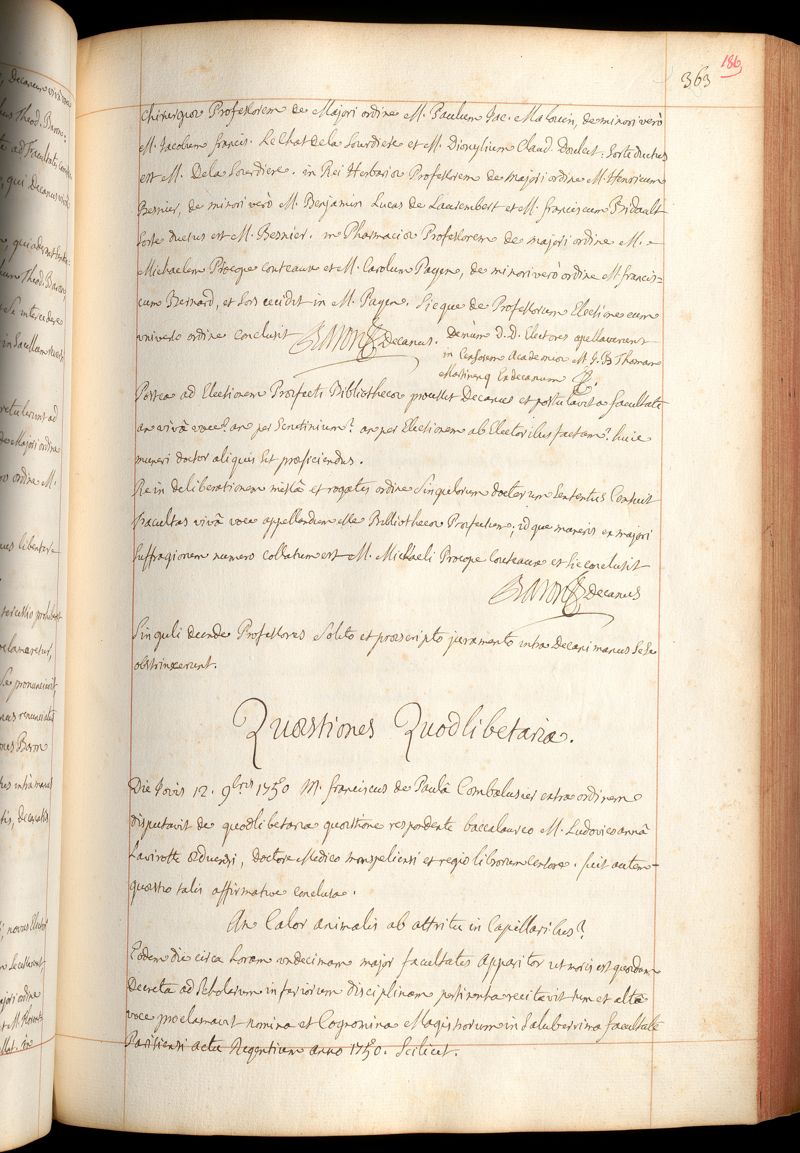 186
363
Chirurgiæ Professorem de Majori ordine M. Paulum Jac. Malouin, de minori verò
M. Jacobum francis. Le Chat de la Sourdiere et M. Dionysium Claud. Doulcet: Sorte ductus
est M. De la Sourdiere. in Rei Herbariæ Professorem de majori ordine M. Henricum
Besnier, de minori verò M. Benjamin Lucas de Laurembert et M. franciscum Bidault
Sorte ductus est M. Besnier. in Pharmaciæ Professorem de majori ordine M.
Michaelem Procope couteaux et M. Carolum Payen, de minori verò ordine M. francis=
cum Bernard, et Sors cecidit in M. Payen. Sicque de Professorum Electione cum
universo ordine conclusit Baron Decanus. Denùm D.D. Electores appellaverunt
in Censorem Academiæ M. J. B. Thomam
Martinenq Exdecanum
Postea ad Electionem Præfecti Bibliothecæ processit Decanus et postulavit a facultate
an vivâ voce? an per Scrutinium? an per Electionem ab Electoribus factam? huic
muneri doctor aliquis sit præficiendus.
Re in deliberationem missâ et rogatis ordine Singulorum doctorum Sententiis Censuit
Facultas vivâ voce appellandum esse Bibliothecæ Præfectum; idque muneris ex majori
Suffragiorum numero collatum est M. Michaeli Procope Couteaux et Sic conclusit
Baron Decanus
Singuli deinde Professores Solito et præscripto juramento intra Decani manus Sese
obstrinxerunt.
Quæstiones Quodlibetariæ.
Die Jovis 12. 9bris 1750 M. franciscus de Paulâ Combalusier extra ordinem
disputavit de quodlibetaria quæstione respondente baccalaureo M. Ludovico annâ
Lavirotte Æduensi, doctore Medico monspeliensi et regio librorum censore. fuit autem
quæstio talis affirmative conclusa.
An Calor animalis ab attritu in Capillaribus?
Eodem die circa horam undecimam major facultatis Apparitor ut moris est quædam
Decreta ad Scholarum inferiorum disciplinam pertinentia recitavit tum et altâ
voce proclamavit nomina et Cognomina Magistrorum in Saluberrima facultate
Parisiensi actu Regentium anno 1750. Scilicet.